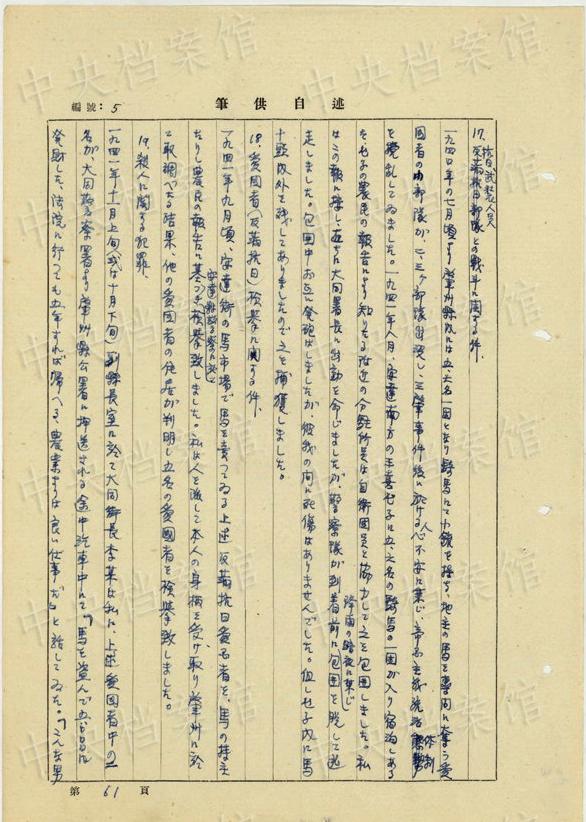 自述供筆
編號：5
17. 反満抗日部隊との戦斗に関する件、
抗日武装人民
一九四〇年の七月頃より肇州縣内には五、六名一団となり騎馬にて小銃を持ち、地主の馬を専門に奪う愛
國者の小部隊が、二、三ヶ部隊出没し、三肇事件後に於ける人心不安に乗じ、帝國主義統治体制
を攪乱してゐました。一九四一年八月、安達南方の王喜屯子に五、六名の騎馬の一団が入り宿泊しある
を屯子の農民の報告により知りたる附近の分駐所員は自衛団員と協力して之を包囲しました。私
はこの報に接し、直ちに大同署長に出動を命じましたが、警察隊が到着前に包囲を脱して逃
降雨の暗夜に乗じ
走しました。包囲中お互に発砲はしましたが、彼我の間に死傷はありませんでした。但し屯子内に馬
十頭内外を残してありましたので之を捕獲しました。
18. 愛國者（反満抗日）検挙に関する件、
一九四一年九月頃、安達街の馬市場で馬を売つてゐる上述反満抗日愛國者を、馬の持主
たりし農民の報告に基づき検挙致しました。私は人を派して本人の身柄を受け取り肇州に於
安達縣警察に於て
て取調べたる結果、他の愛國者の住居が判明し五名の愛國者を検挙致しました。
19. 殺人に関する犯罪、
一九四一年十一月上旬（或は十月下旬）副縣長室に於て大同街長李某は私に、上述愛國者中の一
名が、大同警察署より肇州縣公署に押送される途中汽車中にて「馬を盗んで
発財した、法院に行つても五年すれば帰へる、農業よりは良い仕事だ」と話してゐた。「こんな男
第 61 頁
中央档案馆